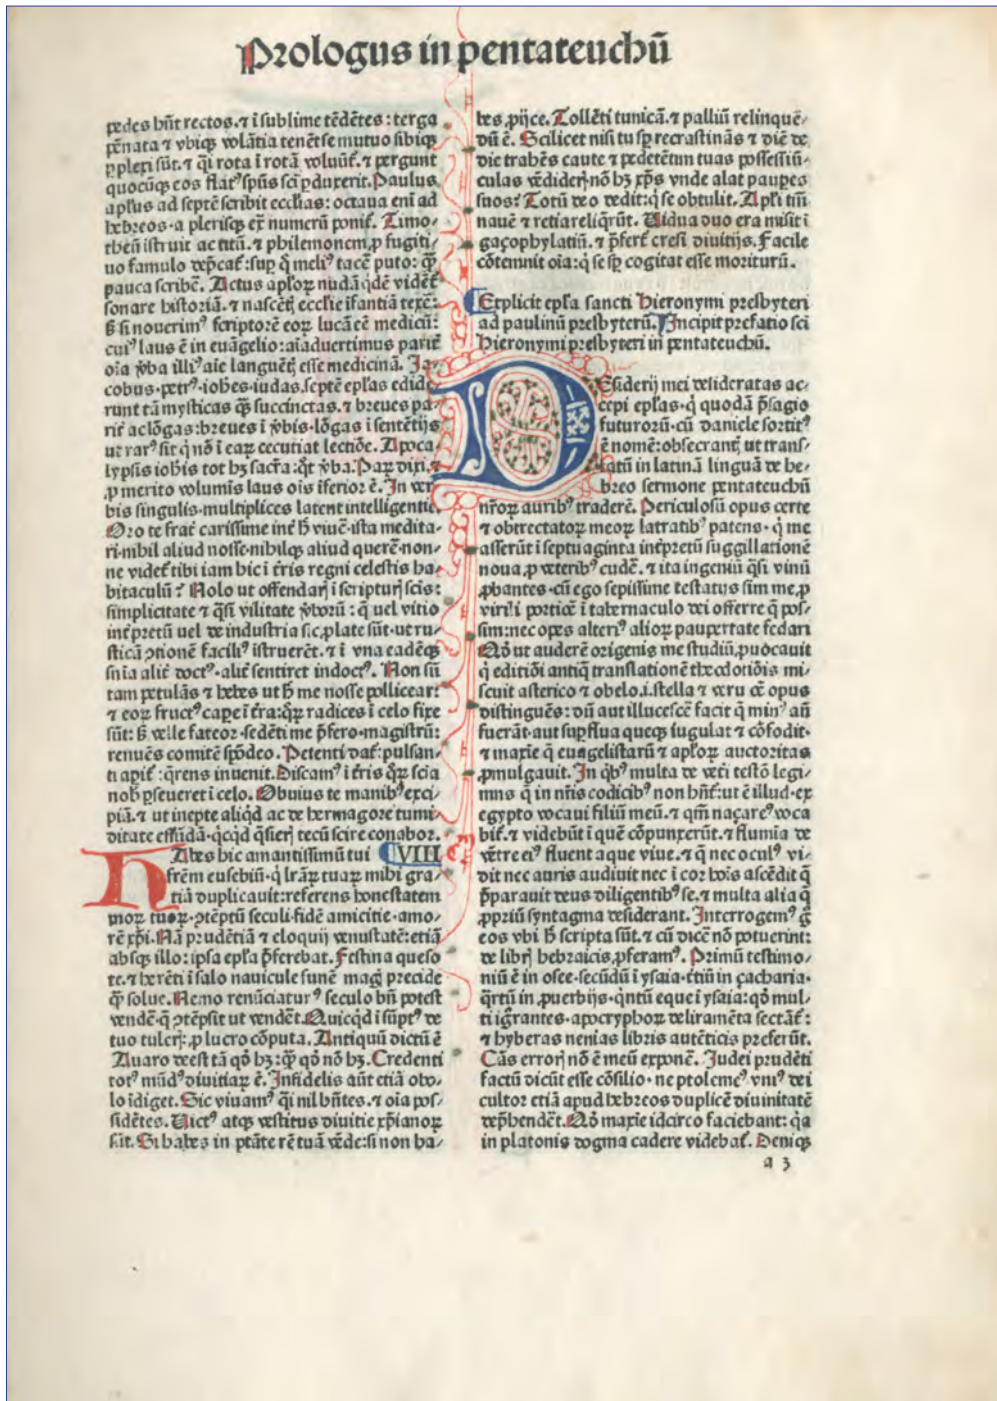 Prologus in pentateuchū
pedes hñt rectos. ⁊ i sublime tēdētes: terga
pēnata ⁊ vbiqꝫ volātia tenēt se mutuo sibiqꝫ
ꝑplexi sūt. ⁊ q̄i rota i rotā voluūt̄. ⁊ pergunt
quocūqꝫ eos flatꝰ spūs sci ꝑduxerit. Paulus
aplus ad septē scribit ecclias: octaua eni ad
hebreos· a plerisqꝫ ex̄ numerū ponit̄. Timo⸗
theū istruit ac titū. ⁊ philemonem, ꝓ fugiti⸗
uo famulo dep̄cat̄: sup q̄ meliꝰ tacē puto: q̄ꝫ
pauca scribē. Actus aploꝝ nudā qdē vidēt̄
sonare historiā. ⁊ nascēt ecclie ifantiā texē:
s̄ si nouerimꝰ scriptorē eoꝝ lucā eē medicū:
cuiꝰ laus ē in euāgelio: aīaduertimus parit̄
oīa v̄ba illiꝰ aīe languēt esse medicinā. Ja⸗
cobus· petrꝰ· iohes· iudas. septē eplas edide⸗
runt tā mysticas q̄ꝫ succinctas. ⁊ breues pa⸗
rit̄ ac lōgas: breues i v̄bis· lōgas i sentētijs
ut rarꝰ sit q̄ nō i eaꝝ cecutiat lectiōe. Apoca⸗
lypsis iohis tot hꝫ sacr̄a: q̄t v̄ba. Paꝝ dixi. ⁊
ꝓ merito volumīs laus oīs iferior ē. In ver⸗
bis singulis· multiplices latent intelligentie.
Oro te frat̄ carissime int̄ h̄ viuē· ista medita⸗
ri· nihil aliud nosse· nihilqꝫ aliud querē· non⸗
ne videt̄ tibi iam hic i t̄ris regni celestis ha⸗
bitaculū? Nolo ut offendar i scriptur scis:
simplicitate ⁊ q̄si vilitate v̄boꝝ: q̄ uel vitio
int̄pretū uel de industria sic, plate sūt· ut ru⸗
sticā ꝯtionē faciliꝰ istruerēt. ⁊ i vna eadēqꝫ
snīa alit̄ doctꝰ· alit̄ sentiret indoctꝰ. Non sū
tam petulās ⁊ hebes ut h̄ me nosse pollicear:
⁊ eoꝝ fructꝰ capē i t̄ra: q̄ꝝ radices i celo fixe
sūt: s̄ velle fateor· sedēti me p̄fero· magistrū:
renuēs comitē spōdeo. Petenti dat̄: pulsan⸗
ti apit̄: q̄rens inuenit. Discamꝰ i t̄ris q̄ꝝ scīa
nob ꝑseueret i celo. Obuius te manibꝰ exci⸗
piā. ⁊ ut inepte aliqd ac de hermagore tumi⸗
ditate effūdā· qcqd q̄sier tecū scire conabor.
HAbes hic amantissimū tui VIII
frēm eusebiū· q̄ lr̄aꝝ tuaꝝ mihi gra⸗
tiā duplicauit: referens honestatem
moꝝ tuoꝝ· ꝯtēptū seculi· fidē amicitie· amo⸗
rē xp̄i. Nā prudētiā ⁊ eloquij venustatē: etiā
absqꝫ illo: ipsa epl̄a p̄ferebat. Festina queso
te. ⁊ herēti i salo nauicule funē mag precide
q̄ꝫ solue. Nemo renūciaturꝰ seculo bn̄ potest
vendē· q̄ ꝯtēpsit ut vendēt. Quicqd i sūptꝰ de
tuo tuler: ꝓ lucro cōputa. Antiquū dictū ē
Auaro deest tā qō hꝫ: q̄ꝫ qō nō hꝫ. Credenti
totꝰ mūdꝰ diuitiaꝝ ē. Infidelis aūt etiā obo⸗
lo īdiget. Sic viuamꝰ q̄i nil hn̄tes. ⁊ oīa pos⸗
sidētes. Uictꝰ atqꝫ vestitus diuitie xp̄ianoꝝ
sūt. Si habes in ptāte rē tuā vēde: si non ha⸗
bes, ꝓijce. Tollēti tunicā. ⁊ palliū relinquē⸗
dū ē. Scilicet nisi tu sꝑ recrastinās ⁊ diē de
die trahēs caute ⁊ pedetētim tuas possessiū⸗
culas vēdider· nō hꝫ xp̄s vnde alat paupes
suos? Totū deo dedit: q̄ se obtulit. Apl̄i tm̄
nauē ⁊ retia reliq̄rūt. Uidua duo era misit i
gaçophylatiū. ⁊ p̄fert̄ cresi diuitijs. Facile
cōtemnit oīa: q̄ se sꝑ cogitat esse moriturū.
Explicit epl̄a sancti Hieronymi presbyteri
ad paulinū presbyterū. Incipit prefatio sci
Hieronymi presbyteri in pentateuchū.
DEsiderij mei desideratas ac⸗
cepi epl̄as· q̄ quodā p̄sagio
futuroꝝ· cū daniele sortitꝰ
ē nomē: obsecrant ut trans⸗
latū in latinā linguā de he⸗
breo sermone pentateuchū
nr̄oꝝ auribꝰ traderē. Periculosū opus certe
⁊ obtrectatoꝝ meoꝝ latratibꝰ patens· q̄ me
asserūt i septuaginta int̄pretū suggillationē
noua, ꝓ veteribꝰ cudē. ⁊ ita ingeniū q̄si vinū
ꝓbantes· cū ego sepissime testatus sim me, ꝓ
virili porticē i tabernaculo dei offerre q̄ pos⸗
sim: nec opes alteriꝰ alioꝝ paupertate fedari
Qō ut auderē origenis me studiū, ꝓuocauit
q̄ editiōi antiq̄ translationē theodotiōis mi⸗
scuit asterico ⁊ obelo .i. stella ⁊ veru oē opus
distinguēs: dū aut illucescē facit q̄ minꝰ añ
fuerāt· aut supflua queqꝫ iugulat ⁊ cōfodit·
⁊ maxie q̄ euāgelistarū ⁊ aploꝝ auctoritas
ꝓmulgauit. In q̄bꝰ multa de veti testō legi⸗
mus q̄ in nr̄is codicibꝰ non hn̄t: ut ē illud· ex
egypto vocaui filiū meū. ⁊ qm̄ naçareꝰ voca
bit̄. ⁊ videbūt i quē cōpunxerūt. ⁊ flumīa de
vētre eiꝰ fluent aque viue. ⁊ q̄ nec oculꝰ vi⸗
dit nec auris audiuit nec i cor hoīs ascēdit q̄
p̄parauit deus diligentibꝰ se. ⁊ multa alia q̄
ꝓpriū syntagma desiderant. Interrogemꝰ g̊
eos vbi h̄ scripta sūt. ⁊ cū dicē nō potuerint:
de libr hebraicis, ꝓferamꝰ. Primū testimo⸗
niū ē in osee· secūdū i ysaia· t̄tiū in çacharia·
q̄rtū in, ꝓuerbijs· q̄ntū eque i ysaia: qō mul⸗
ti igrātes· apocryphoꝝ deliramēta sectāt̄:
⁊ hyberas nenias libris autēticis preferūt.
Cās error nō ē meū exponē. Judei prudēti
factū dicūt esse cōsilio· ne ptolemeꝰ vniꝰ dei
cultor etiā apud hebreos duplicē diuinitatē
dep̄hendēt. Qō maxie idcirco faciebant: q̄a
in platonis dogma cadere videbāt̄. Deniqꝫ
a 3